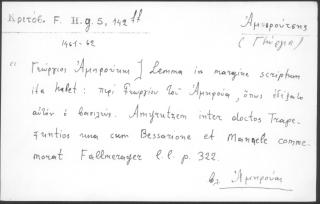 Κριτόβ. F. H. g. 5, 142 ff
Ἀμοιρούτσης
(Γεώργιος)
1461-62
Γεώργιος Ἀμηρούκης] Lemma in margine scriptum
ita habet: περὶ Γεωργίου τοῦ Ἀμηρούκα, ὅπως ἐδέξατο
αὐτὸν ὁ βασιλεύς. Amyrutzem inter doctos Trape-
zuntios una cum Bessarione et Manuele comme-
morat Fallmerayer l. l. p. 322.
βλ. Ἀμηρούκης